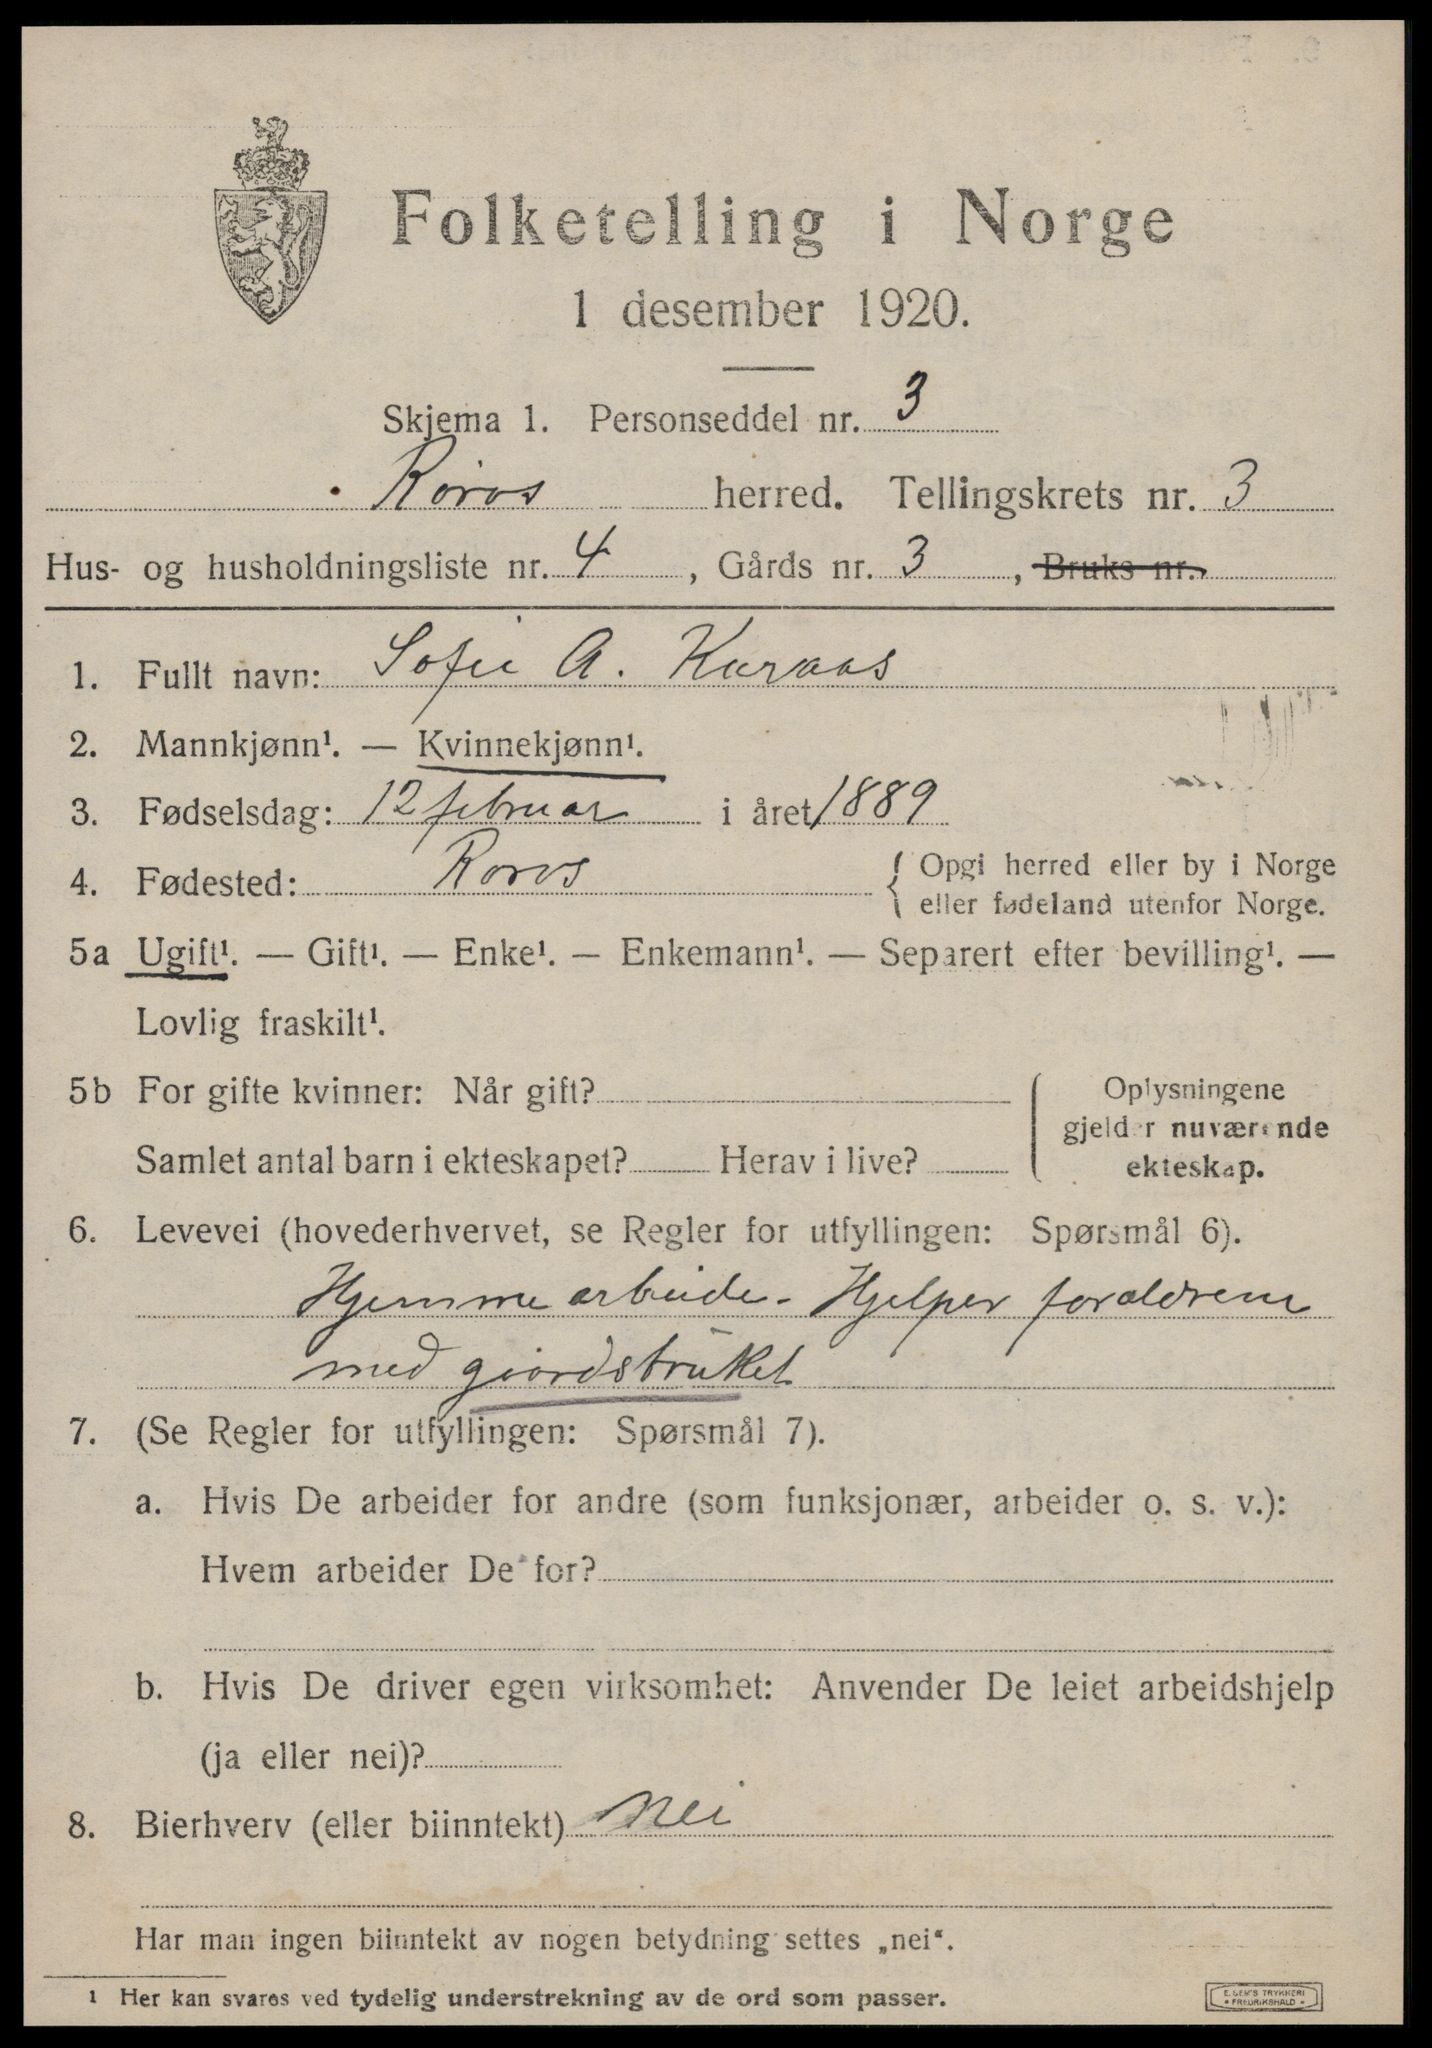 Folketelling i Norge
1 desember 1920.
Skjema 1. Personseddel nr. 3
Röros herred. Tellingskrets nr. 3
Hus- og husholdningsliste nr. 4, Gårds nr. 3, Bruks nr.
1. Fullt navn: Sofie A. Kuraas
2. Mannkjønn¹. — Kvinnekjønn¹.
3. Fødselsdag: 12 februar i året 1889
4. Fødested: Roros { Opgi herred eller by i Norge
eller fødeland utenfor Norge.
5a Ugift¹. — Gift¹. — Enke¹. — Enkemann¹. — Separert efter bevilling¹. —
Lovlig fraskilt¹.
5b For gifte kvinner: Når gift? { Oplysningene
gjelder nuværende
Samlet antal barn i ekteskapet? Herav i live? ekteskap.
6. Levevei (hovederhvervet, se Regler for utfyllingen: Spørsmål 6).
Hjemmearbeide - Hjelper foraldrene
med gaardsbrüket
7. (Se Regler for utfyllingen: Spørsmål 7).
a. Hvis De arbeider for andre (som funksjonær, arbeider o. s. v.):
Hvem arbeider De for?
b. Hvis De driver egen virksomhet: Anvender De leiet arbeidshjelp
(ja eller nei)?
8. Bierhverv (eller biinntekt) Nei
Har man ingen biinntekt av nogen betydning settes „nei“.
¹ Her kan svares ved tydelig understrekning av de ord som passer.
E. SEM'S TRYKKERI
• FREDRIKSHALD •